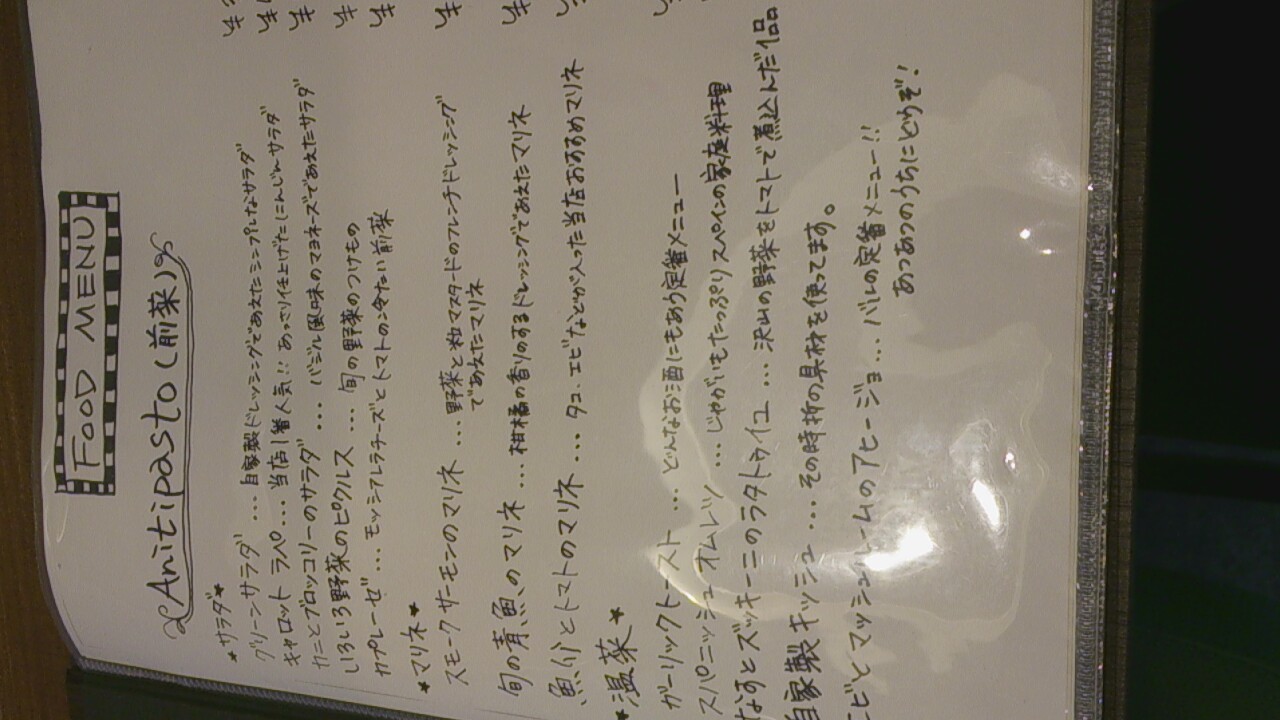 FOOD MENU
Anitipasto（前菜）
★サラダ★
グリーンサラダ …自家製ドレッシングであえたシンプルなサラダ
キャロット ラペ…当店1番人気!! あっさり仕上げたにんじんサラダ
カニとブロッコリーのサラダ …バジル風味のマヨネーズであえたサラダ
いろいろ野菜のピクルス …旬の野菜のつけもの
カプレーゼ…モッツァレラチーズとトマトの冷たい前菜
★マリネ★
スモークサーモンのマリネ …野菜と粒マスタードのフレンチドレッシング
であえたマリネ
旬の青魚のマリネ …柑橘の香りのするドレッシングであえたマリネ
魚介とトマトのマリネ…タコ、エビなどが入った当店おすすめマリネ
★温菜★
ガーリックトースト …どんなお酒にもあう定番メニュー
スパニッシュオムレツ …じゃがいもたっぷりスペインの家庭料理
なすとズッキーニのラタトゥイユ …沢山の野菜をトマトで煮込んだ1品
自家製キッシュ…その時折の具材を使ってます。
エビとマッシュルームのアヒージョ…バルの定番メニュー!!
あつあつのうちにどうぞ!
¥
¥
¥
¥
¥
¥
¥
¥
¥